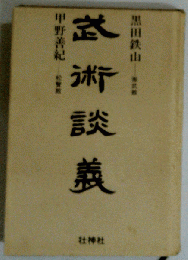 黒田鉄山
武術談義
甲野善紀
壮神社